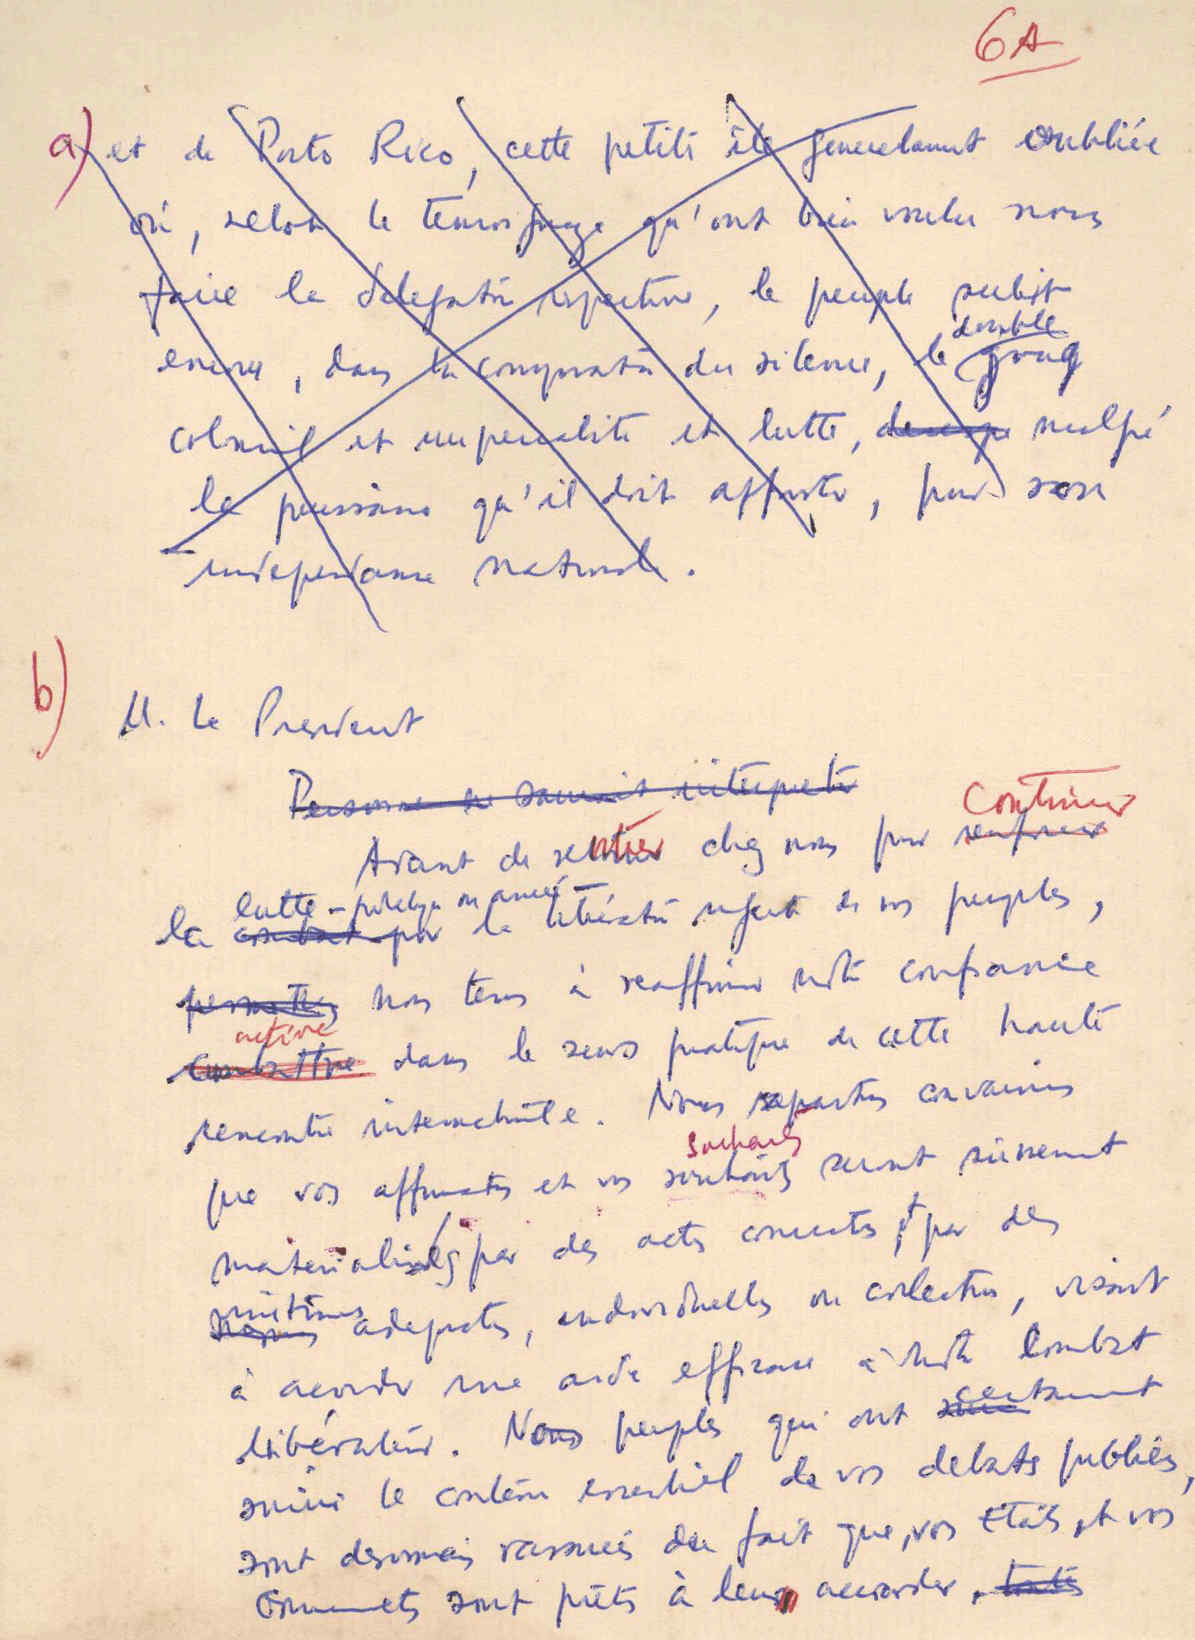 6A
a) et de Porto Rico, cette petite île generalement oubliée
où, selon le témoignage qu'ont bien voulu nous
faire la delegation respective, le peuple subit
encore, dans la conspiration du silence, le double joug
colonial et imperialiste et lutte, malgré
la puissance qu'il doit affronter, pour son
independance nationale.
b)
M. le President
Personne ne saurait interpreter
Avant de rentrer chez nous pour continuer
la lutte la libération de nos peuples,
permettez nous tenons à reaffirmer notre confiance
active
combattre dans le sens pratique de cette haute
rencontre internationale. Nous repartons convaincus
souhaits
que vos affirmations et vos souhaits seront sûrement
materialisés par des actes concrets et par des
adequates, individuelles ou collectives, visant
à accorder une aide efficace à notre combat
libérateur. Nos peuples qui ont certainement
suivi le contenu essentiel de vos debats publiés,
sont desormais rassurés du fait que, vos Etats, et vos
sont prêts à leur accorder, toute